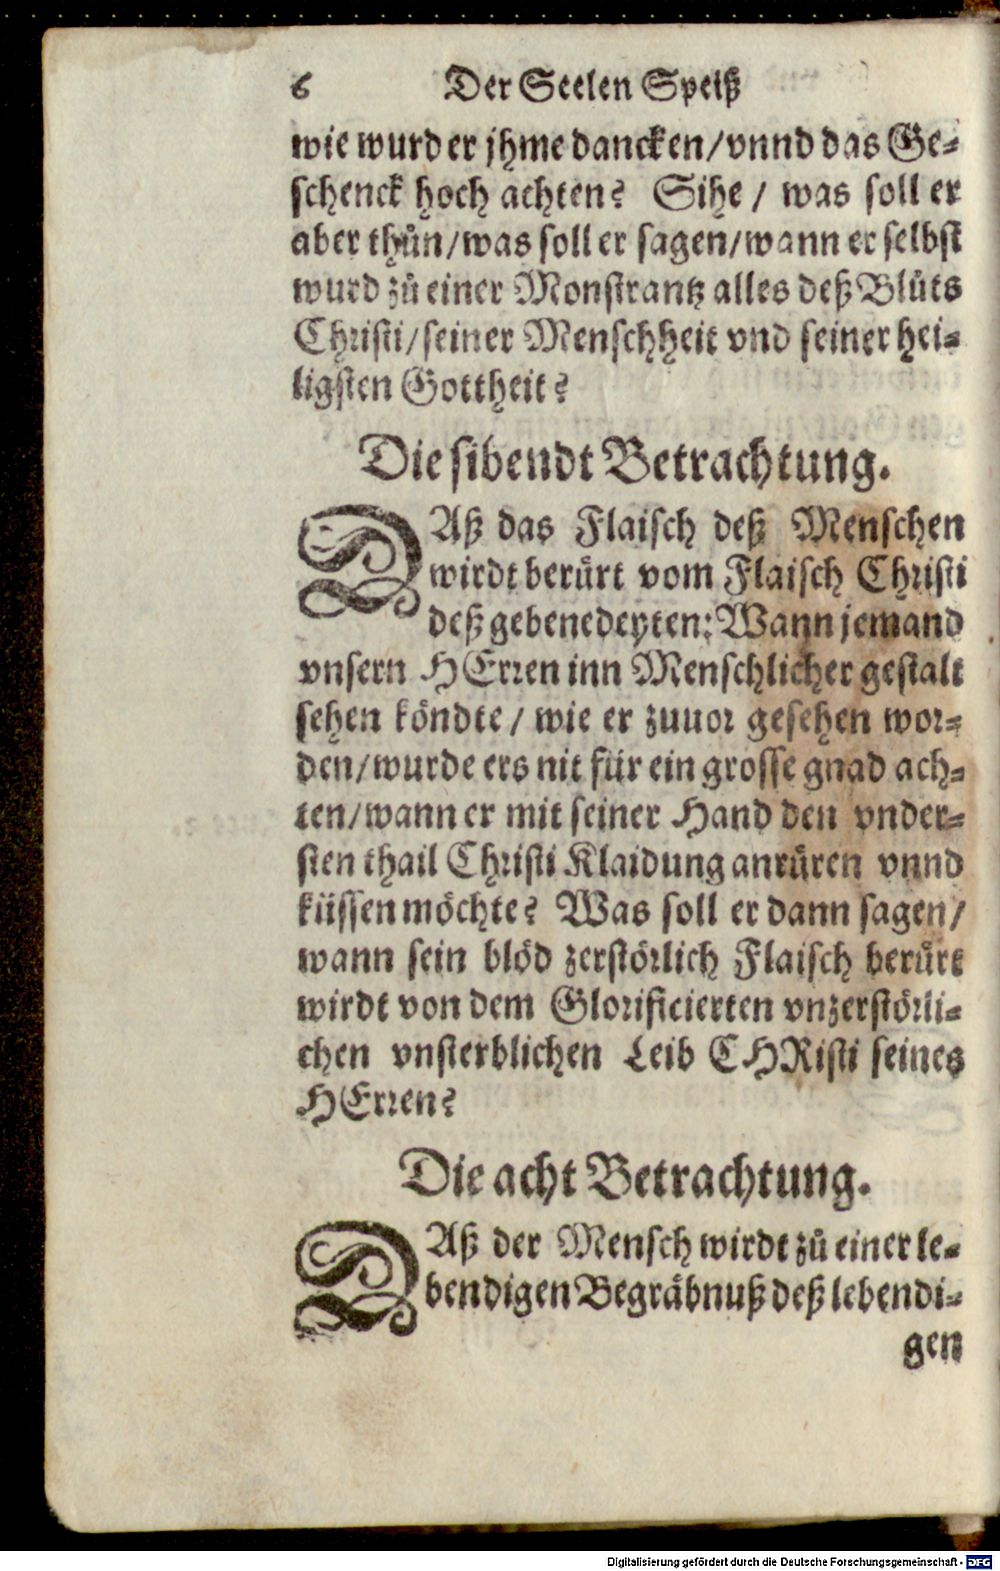 6 Der Seelen Speiß
wie wurd er jhme dancken/vnnd das Ge-
schenck hoch achten? Sihe / was soll er
aber thůn/was soll er sagen/wann er selbst
wurd zů einer Monstrantz alles deß Blůts
Christi/seiner Menschheit vnd seiner hei-
ligsten Gottheit?
Die sibendt Betrachtung.
DAß das Flaisch deß Menschen
wirdt berürt vom Flaisch Christi
deß gebenedeyten: Wann jemand
vnsern HErren inn Menschlicher gestalt
sehen köndte / wie er zuuor gesehen wor-
den/wurde ers nit für ein grosse gnad ach-
ten/wann er mit seiner Hand den vnder-
sten thail Christi Klaidung anrüren vnnd
küssen möchte? Was soll er dann sagen/
wann sein blöd zerstörlich Flaisch berürt
wirdt von dem Glorificierten vnzerstörli-
chen vnsterblichen Leib CHRisti seines
HErren?
Die acht Betrachtung.
DAß der Mensch wirdt zů einer le-
bendigen Begräbnuß deß lebendi-
gen
Digitalisierung gefördert durch die Deutsche Forschungsgemeinschaft - DFG